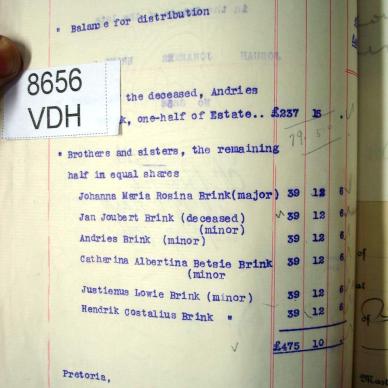 " Balance for distribution
8656
VDH
the deceased, Andries
k, one-half of Estate.. £237 15 .
" Brothers and sisters, the remaining
half in equal shares
Johanna Maria Rosina Brink(major) 39 12 6
Jan Joubert Brink (deceased) 39 12 6
(minor)
Andries Brink (minor) 39 12 6
Catharina Albertina Betsie Brink 39 12 6
(minor
Justienus Lowie Brink (minor) 39 12 6
Hendrik Costalius Brink " 39 12 6
£475 10 .
Pretoria,